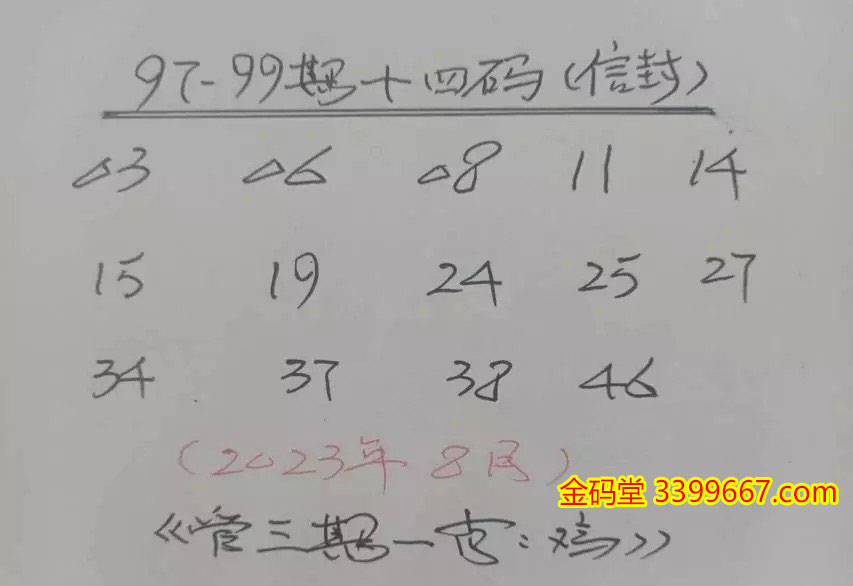 97-99期十四码(信封)
03 06 08 11 14
15 19 24 25 27
34 37 38 46
(2023年8月)
金码堂 3399667.com
《管三期一肖:鸡》